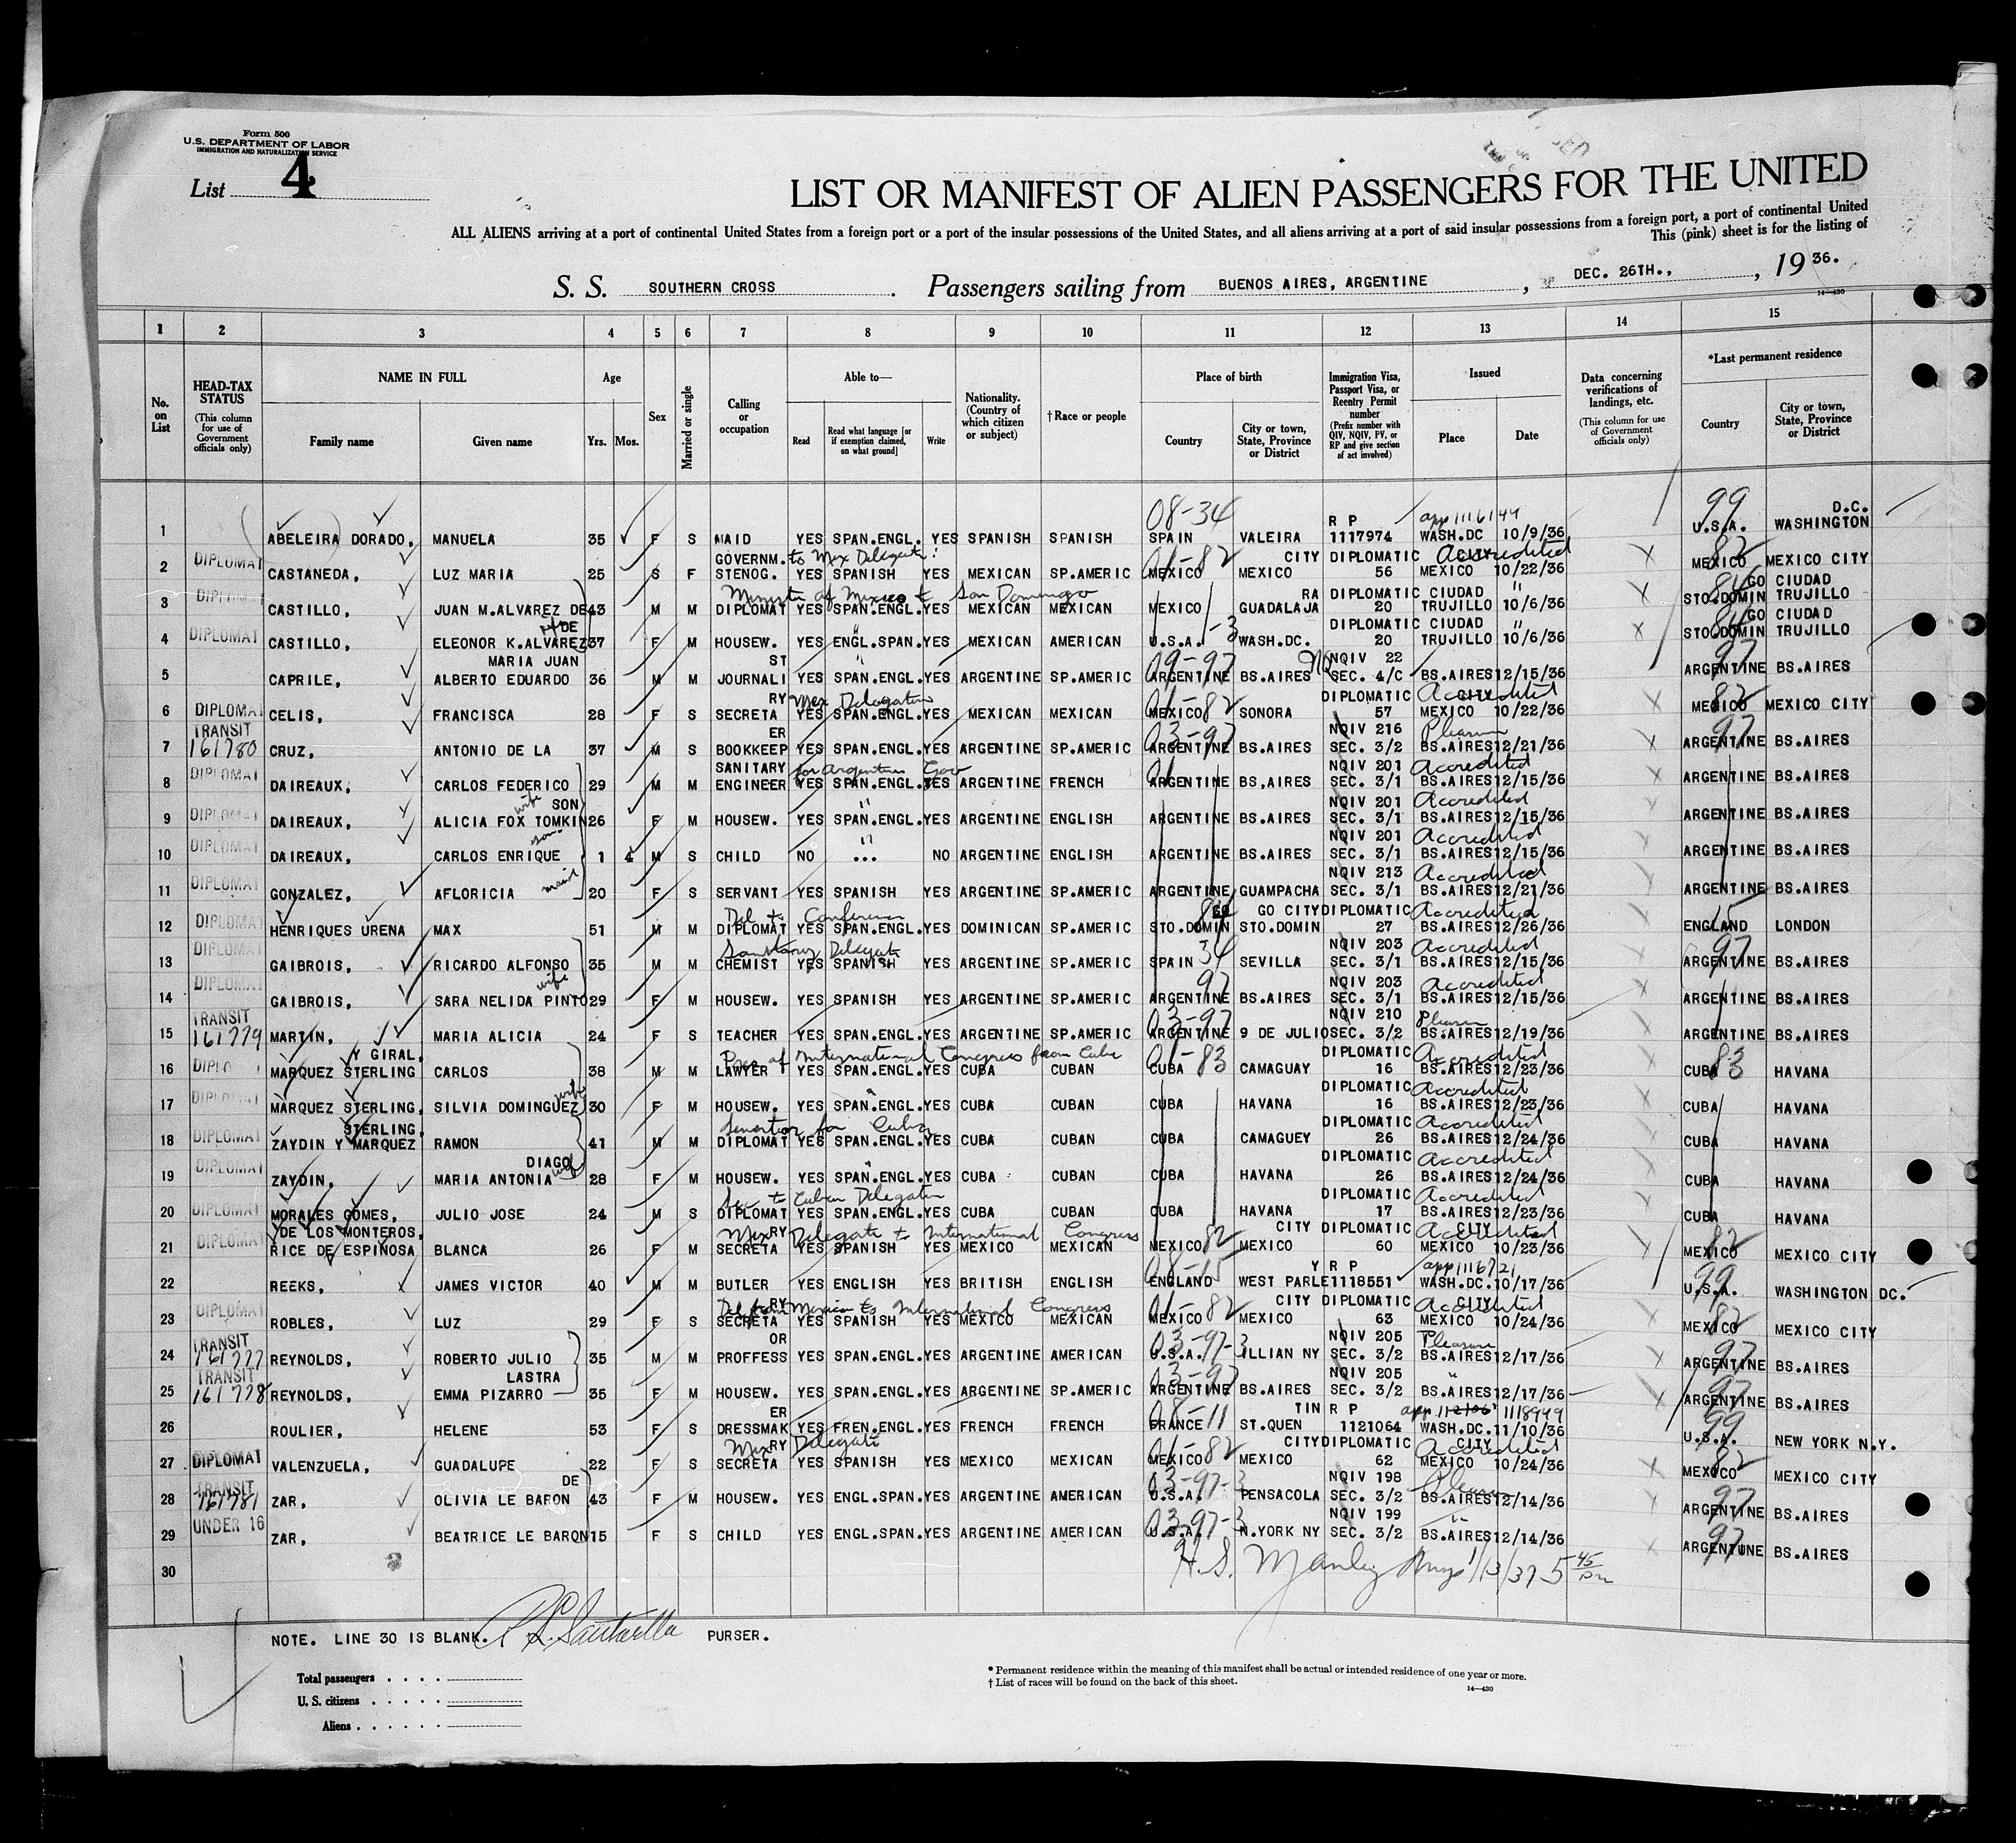 Form 500
U.S. DEPARTMENT OF LABOR
IMMIGRATION AND NATURALIZATION SERVICE
List 4
LIST OR MANIFEST OF ALIEN PASSENGERS FOR THE UNITED
ALL ALIENS arriving at a port of continental United States from a foreign port or a port of the insular possessions of the United States, and all aliens arriving at a port of said insular possessions from a foreign port, a port of continental United
This (pink) sheet is for the listing of
S. S. SOUTHERN CROSS . Passengers sailing from BUENOS AIRES, ARGENTINE , DEC. 26TH., , 19 36.
14—430
1 2 3 4 5 6 7 8 9 10 11 12 13 14 15
No. on List
HEAD-TAX STATUS (This column for use of Government officials only)
NAME IN FULL Family name Given name
Age Yrs. Mos.
Sex
Married or single
Calling or occupation
Able to— Read Read what language [or if exemption claimed, on what ground] Write
Nationality. (Country of which citizen or subject)
†Race or people
Place of birth Country City or town, State, Province or District
Immigration Visa, Passport Visa, or Reentry Permit number (Prefix number with QIV, NQIV, PV, or RP and give section of act involved)
Issued Place Date
Data concerning verifications of landings, etc. (This column for use of Government officials only)
*Last permanent residence Country City or town, State, Province or District
08-34 R P app 1116144 99 D.C.
1 ABELEIRA DORADO, MANUELA 35 F S MAID YES SPAN.ENGL. YES SPANISH SPANISH SPAIN VALEIRA 1117974 WASH.DC 10/9/36 U.S.A. WASHINGTON
DIPLOMAT GOVERNM. to Mex Delegate 01-82 CITY DIPLOMATIC CITY Accredited 82
2 CASTANEDA, LUZ MARIA 25 S F STENOG. YES SPANISH YES MEXICAN SP.AMERIC MEXICO MEXICO 56 MEXICO 10/22/36 MEXICO MEXICO CITY
DIPLOMAT Minister of Mexico to San Domingo RA DIPLOMATIC CIUDAD " 84 GO CIUDAD
3 CASTILLO, JUAN M.ALVAREZ DE 43 M M DIPLOMAT YES SPAN.ENGL. YES MEXICAN MEXICAN MEXICO GUADALAJA 20 TRUJILLO 10/6/36 STO.DOMIN TRUJILLO
DIPLOMAT DE " DIPLOMATIC CIUDAD " 84 GO CIUDAD
4 CASTILLO, ELEONOR K.ALVAREZ 37 F M HOUSEW. YES ENGL.SPAN. YES MEXICAN AMERICAN U.S.A. -3 WASH.DC. 20 TRUJILLO 10/6/36 STO.DOMIN TRUJILLO
MARIA JUAN ST " 09-97 NQIV 22 97
5 CAPRILE, ALBERTO EDUARDO 36 M M JOURNALI YES SPAN.ENGL. YES ARGENTINE SP.AMERIC ARGENTINE BS.AIRES SEC. 4/C BS.AIRES 12/15/36 ARGENTINE BS.AIRES
DIPLOMAT RY Mex Delegation 01-82 DIPLOMATIC CITY Accredited 82
6 CELIS, FRANCISCA 28 F S SECRETA YES SPAN.ENGL. YES MEXICAN MEXICAN MEXICO SONORA 57 MEXICO 10/22/36 MEXICO MEXICO CITY
TRANSIT ER 03-97 NQIV 216 Pleasure 97
7 161780 CRUZ, ANTONIO DE LA 37 M S BOOKKEEP YES SPAN.ENGL. YES ARGENTINE SP.AMERIC ARGENTINE BS.AIRES SEC. 3/2 BS.AIRES 12/21/36 ARGENTINE BS.AIRES
DIPLOMAT SANITARY for Argentine Gov 01 NQIV 201 Accredited
8 DAIREAUX, CARLOS FEDERICO 29 M M ENGINEER YES SPAN.ENGL. YES ARGENTINE FRENCH ARGENTINE BS.AIRES SEC. 3/1 BS.AIRES 12/15/36 ARGENTINE BS.AIRES
DIPLOMAT wife SON " NQIV 201 Accredited
9 DAIREAUX, ALICIA FOX TOMKIN 26 F M HOUSEW. YES SPAN.ENGL. YES ARGENTINE ENGLISH ARGENTINE BS.AIRES SEC. 3/1 BS.AIRES 12/15/36 ARGENTINE BS.AIRES
DIPLOMAT son " NQIV 201 Accredited
10 DAIREAUX, CARLOS ENRIQUE 1 4 M S CHILD NO ... NO ARGENTINE ENGLISH ARGENTINE BS.AIRES SEC. 3/1 BS.AIRES 12/15/36 ARGENTINE BS.AIRES
DIPLOMAT maid NQIV 213 Accredited
11 GONZALEZ, AFLORICIA 20 F S SERVANT YES SPANISH YES ARGENTINE SP.AMERIC ARGENTINE GUAMPACHA SEC. 3/1 BS.AIRES 12/21/36 ARGENTINE BS.AIRES
DIPLOMAT Del to Conference 84 GO GO CITY DIPLOMATIC Accredited 15
12 HENRIQUES URENA MAX 51 M M DIPLOMAT YES SPAN.ENGL. YES DOMINICAN SP.AMERIC STO.DOMIN STO.DOMIN 27 BS.AIRES 12/26/36 ENGLAND LONDON
DIPLOMAT Sanitary Delegate 34 NQIV 203 Accredited 97
13 GAIBROIS, RICARDO ALFONSO 35 M M CHEMIST YES SPANISH YES ARGENTINE SP.AMERIC SPAIN SEVILLA SEC. 3/1 BS.AIRES 12/15/36 ARGENTINE BS.AIRES
DIPLOMAT wife 97 NQIV 203 Accredited
14 GAIBROIS, SARA NELIDA PINTO 29 F M HOUSEW. YES SPANISH YES ARGENTINE SP.AMERIC ARGENTINE BS.AIRES SEC. 3/1 BS.AIRES 12/15/36 ARGENTINE BS.AIRES
TRANSIT 03-97 NQIV 210 Pleasure
15 161779 MARTIN, MARIA ALICIA 24 F S TEACHER YES SPAN.ENGL. YES ARGENTINE SP.AMERIC ARGENTINE 9 DE JULIO SEC. 3/2 BS.AIRES 12/19/36 ARGENTINE BS.AIRES
DIPLO Y GIRAL, of International Congress from Cuba 01-83 DIPLOMATIC Accredited 83
16 MARQUEZ STERLING CARLOS 38 M M LAWYER YES SPAN.ENGL. YES CUBA CUBAN CUBA CAMAGUAY 16 BS.AIRES 12/23/36 CUBA HAVANA
DIPLOMAT wife " DIPLOMATIC Accredited
17 MARQUEZ STERLING, SILVIA DOMINGUEZ 30 F M HOUSEW. YES SPAN.ENGL. YES CUBA CUBAN CUBA HAVANA 16 BS.AIRES 12/23/36 CUBA HAVANA
DIPLOMAT STERLING, for Cuba DIPLOMATIC Accredited
18 ZAYDIN Y MARQUEZ RAMON 41 M M DIPLOMAT YES SPAN.ENGL. YES CUBA CUBAN CUBA CAMAGUEY 26 BS.AIRES 12/24/36 CUBA HAVANA
DIPLOMAT DIAGO wife " DIPLOMATIC Accredited
19 ZAYDIN, MARIA ANTONIA 28 F M HOUSEW. YES SPAN.ENGL. YES CUBA CUBAN CUBA HAVANA 26 BS.AIRES 12/24/36 CUBA HAVANA
DIPLOMAT Sec to Cuban Delegation DIPLOMATIC Accredited
20 MORALES GOMES, JULIO JOSE 24 M S DIPLOMAT YES SPAN.ENGL. YES CUBA CUBAN CUBA HAVANA 17 BS.AIRES 12/23/36 CUBA HAVANA
DIPLOMAT DE LOS MONTEROS, Mex RY Delegate to International Congress 82 CITY DIPLOMATIC CITY Accredited 82
21 RICE DE ESPINOSA BLANCA 26 F M SECRETA YES SPANISH YES MEXICO MEXICAN MEXICO MEXICO 60 MEXICO 10/23/36 MEXICO MEXICO CITY
08-15 Y R P app 1116721 99
22 REEKS, JAMES VICTOR 40 M M BUTLER YES ENGLISH YES BRITISH ENGLISH ENGLAND WEST PARLE 1118551 WASH.DC. 10/17/36 U.S.A. WASHINGTON DC.
DIPLOMAT Del from RY Mexico to International Congress 01-82 CITY DIPLOMATIC CITY Accredited 82
23 ROBLES, LUZ 29 F S SECRETA YES SPANISH YES MEXICO MEXICAN MEXICO MEXICO 63 MEXICO 10/24/36 MEXICO MEXICO CITY
TRANSIT OR 03-97-3 NQIV 205 Pleasure 97
24 161777 REYNOLDS, ROBERTO JULIO 35 M M PROFFESS YES SPAN.ENGL. YES ARGENTINE AMERICAN U.S.A. ILLIAN NY SEC. 3/2 BS.AIRES 12/17/36 ARGENTINE BS.AIRES
TRANSIT LASTRA 03-97 NQIV 205 " 97
25 161778 REYNOLDS, EMMA PIZARRO 35 F M HOUSEW. YES SPAN.ENGL. YES ARGENTINE SP.AMERIC ARGENTINE BS.AIRES SEC. 3/2 BS.AIRES 12/17/36 ARGENTINE BS.AIRES
ER 08-11 TIN R P app 1118949 99
26 ROULIER, HELENE 53 F S DRESSMAK YES FREN.ENGL. YES FRENCH FRENCH FRANCE ST.QUEN 1121064 WASH.DC. 11/10/36 U.S.A. NEW YORK N.Y.
Mex RY Delegate 01-82 CITY DIPLOMATIC CITY Accredited 82
27 DIPLOMAT VALENZUELA, GUADALUPE 22 F S SECRETA YES SPANISH YES MEXICO MEXICAN MEXICO MEXICO 62 MEXICO 10/24/36 MEXICO MEXICO CITY
TRANSIT DE 03-97-3 NQIV 198 Pleasure 97
28 161781 ZAR, OLIVIA LE BARON 43 F M HOUSEW. YES ENGL.SPAN. YES ARGENTINE AMERICAN U.S.A. PENSACOLA SEC. 3/2 BS.AIRES 12/14/36 ARGENTINE BS.AIRES
UNDER 16 03-97-3 NQIV 199 " 97
29 ZAR, BEATRICE LE BARON 15 F S CHILD YES ENGL.SPAN. YES ARGENTINE AMERICAN U.S.A. N.YORK NY SEC. 3/2 BS.AIRES 12/14/36 ARGENTUNE BS.AIRES
30 H.S. Manley 1/13/37 5 45 pm
NOTE. LINE 30 IS BLANK. PURSER.
Total passengers . . . .
U. S. citizens . . . . .
Aliens . . . . . .
* Permanent residence within the meaning of this manifest shall be actual or intended residence of one year or more.
† List of races will be found on the back of this sheet.
14—430